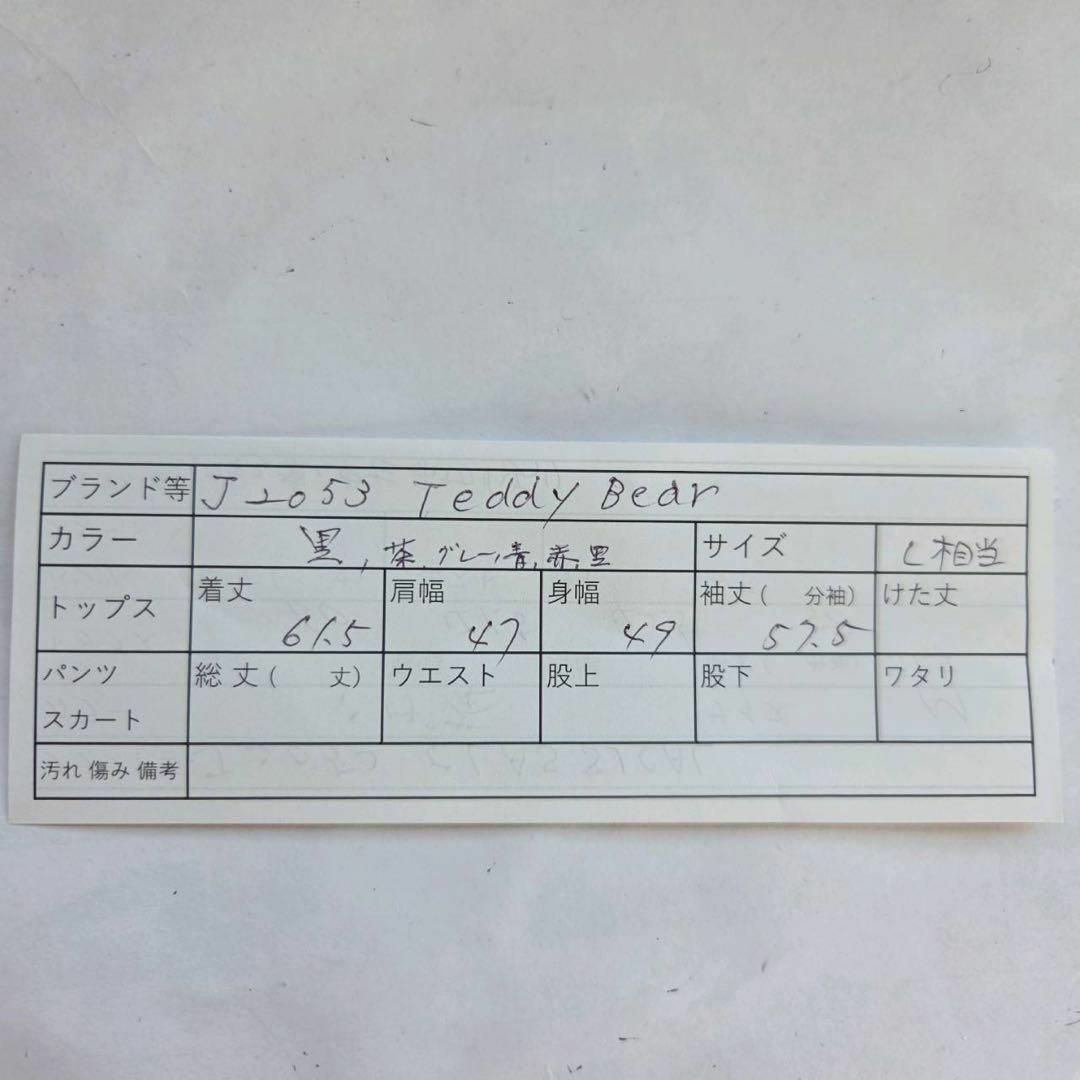 ブランド等 J2053 Teddy Bear
カラー 黒, 茶, グレー, 青, 赤, 黒 サイズ L相当
トップス 着丈 61.5 肩幅 47 身幅 49 袖丈( 分袖) 57.5 けた丈
パンツ スカート 総丈( 丈) ウエスト 股上 股下 ワタリ
汚れ 傷み 備考